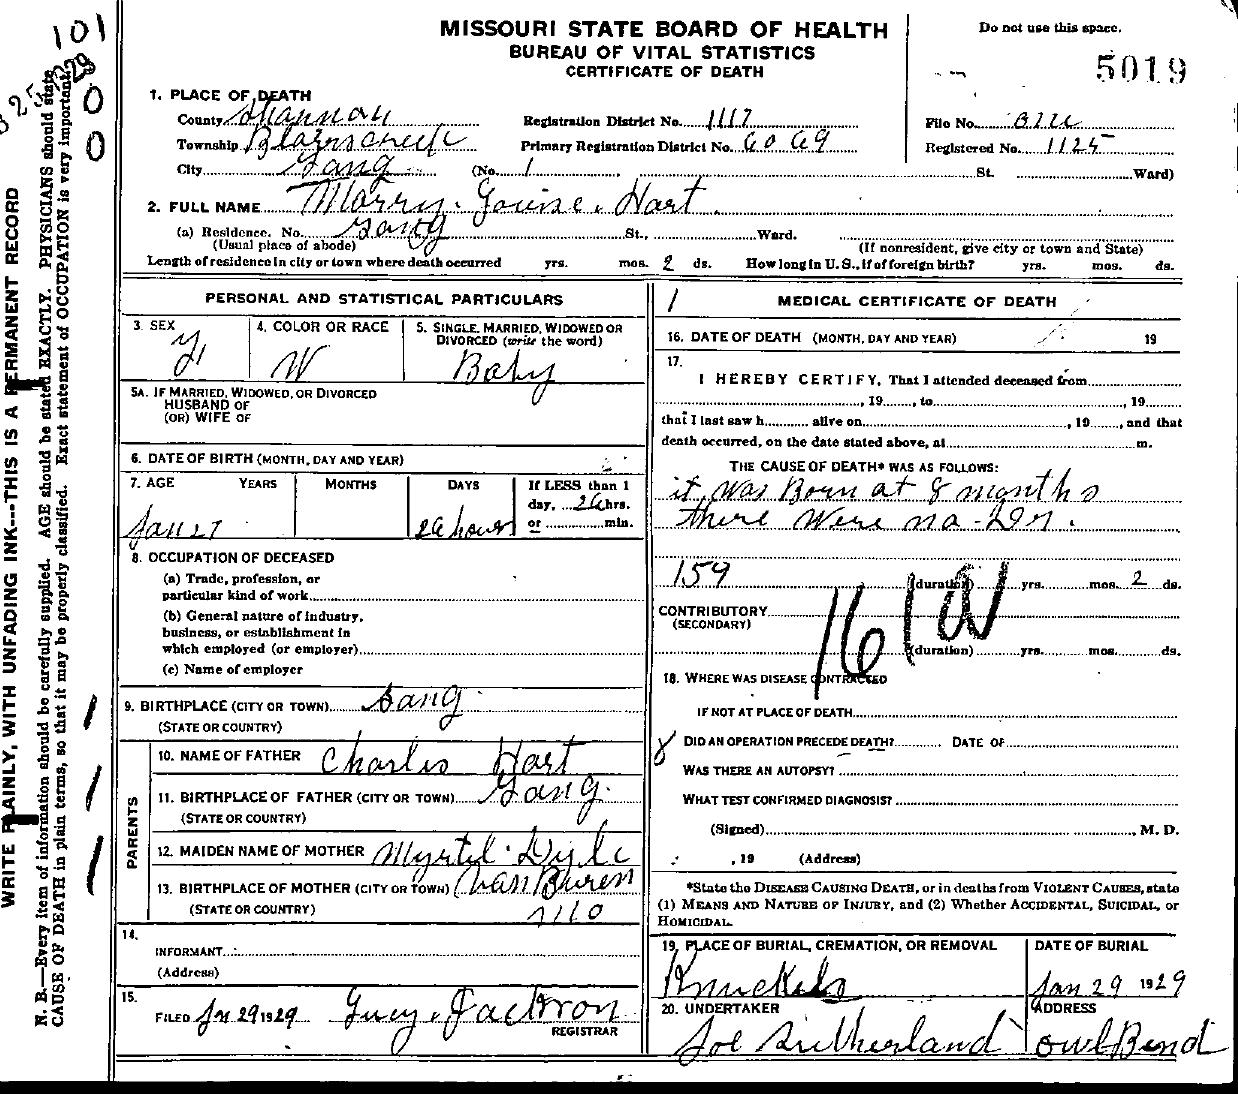 MISSOURI STATE BOARD OF HEALTH
BUREAU OF VITAL STATISTICS
CERTIFICATE OF DEATH
Do not use this space.
5019
101
0
0
WRITE PLAINLY, WITH UNFADING INK---THIS IS A PERMANENT RECORD
N. B.—Every item of information should be carefully supplied. AGE should be stated EXACTLY. PHYSICIANS should state
CAUSE OF DEATH in plain terms, so that it may be properly classified. Exact statement of OCCUPATION is very important.
1. PLACE OF DEATH
County Shannon Registration District No. 1117 File No.
Township Primary Registration District No. 6069 Registered No. 1125
City Gang (No. 1 St. Ward)
2. FULL NAME Marry. Louise. Hart.
(a) Residence. No. Gang St., Ward.
(Usual place of abode) (If nonresident, give city or town and State)
Length of residence in city or town where death occurred yrs. mos. 2 ds. How long in U. S., if of foreign birth? yrs. mos. ds.
PERSONAL AND STATISTICAL PARTICULARS
3. SEX F
4. COLOR OR RACE W
5. SINGLE, MARRIED, WIDOWED OR
DIVORCED (write the word)
Baby
5A. IF MARRIED, WIDOWED, OR DIVORCED
HUSBAND OF
(OR) WIFE OF
6. DATE OF BIRTH (MONTH, DAY AND YEAR)
7. AGE YEARS MONTHS DAYS If LESS than 1
day, 26 hrs.
or min.
Jan 27 26 hours
8. OCCUPATION OF DECEASED
(a) Trade, profession, or
particular kind of work
(b) General nature of industry,
business, or establishment in
which employed (or employer)
(c) Name of employer
9. BIRTHPLACE (CITY OR TOWN) Gang
(STATE OR COUNTRY)
PARENTS
10. NAME OF FATHER Charles Hart
11. BIRTHPLACE OF FATHER (CITY OR TOWN) Gang.
(STATE OR COUNTRY)
12. MAIDEN NAME OF MOTHER Myrtel
13. BIRTHPLACE OF MOTHER (CITY OR TOWN) Van Buren
(STATE OR COUNTRY) Mo
14.
INFORMANT
(Address)
15.
FILED Jan 29 1929 Jackson
REGISTRAR
1 MEDICAL CERTIFICATE OF DEATH
16. DATE OF DEATH (MONTH, DAY AND YEAR) 19
17.
I HEREBY CERTIFY, That I attended deceased from
, 19 , to , 19
that I last saw h alive on , 19 , and that
death occurred, on the date stated above, at m.
THE CAUSE OF DEATH* WAS AS FOLLOWS:
it was Born at 8 months
there were no - Dr.
159 (duration) yrs. mos. 2 ds.
161a
CONTRIBUTORY
(SECONDARY)
(duration) yrs. mos. ds.
18. WHERE WAS DISEASE CONTRACTED
IF NOT AT PLACE OF DEATH
DID AN OPERATION PRECEDE DEATH? DATE OF
WAS THERE AN AUTOPSY?
WHAT TEST CONFIRMED DIAGNOSIS?
(Signed) , M. D.
, 19 (Address)
*State the DISEASE CAUSING DEATH, or in deaths from VIOLENT CAUSES, state
(1) MEANS AND NATURE OF INJURY, and (2) Whether ACCIDENTAL, SUICIDAL, or
HOMICIDAL.
19. PLACE OF BURIAL, CREMATION, OR REMOVAL DATE OF BURIAL
Knuckels Jan 29 1929
20. UNDERTAKER ADDRESS
Joe Sutherland Owl Bend